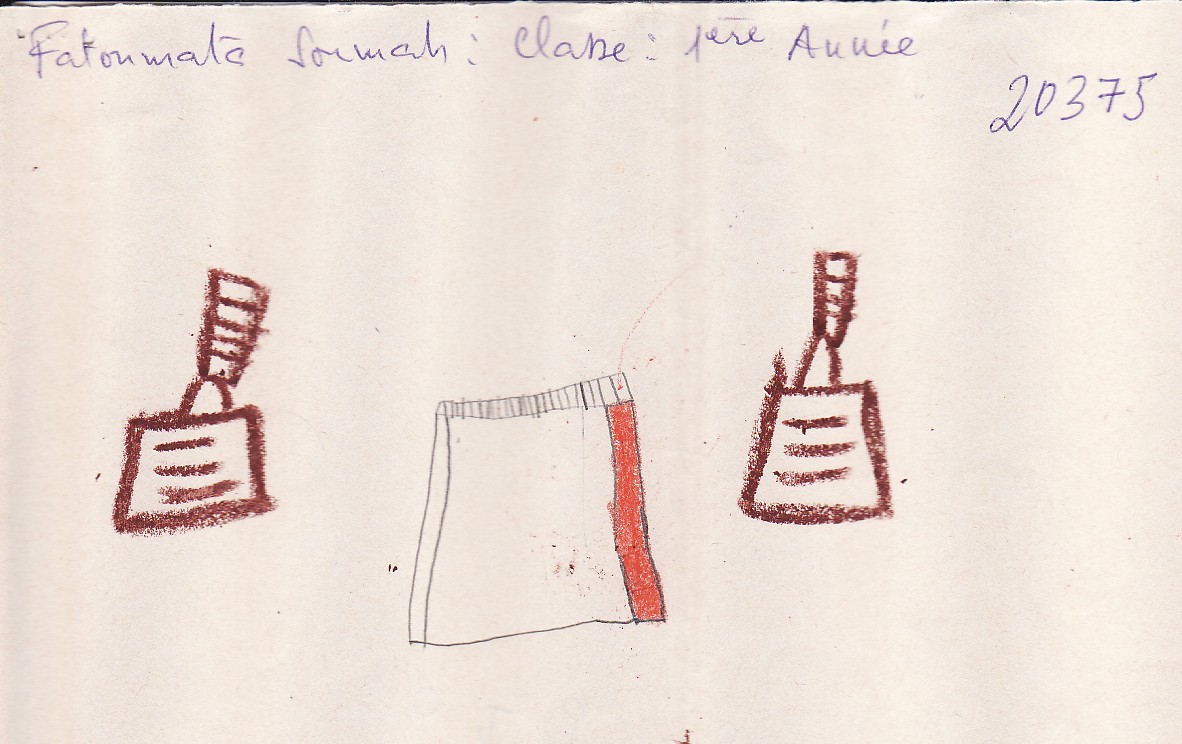 Fatoumata Soumah : Classe : 1ère Année
20375